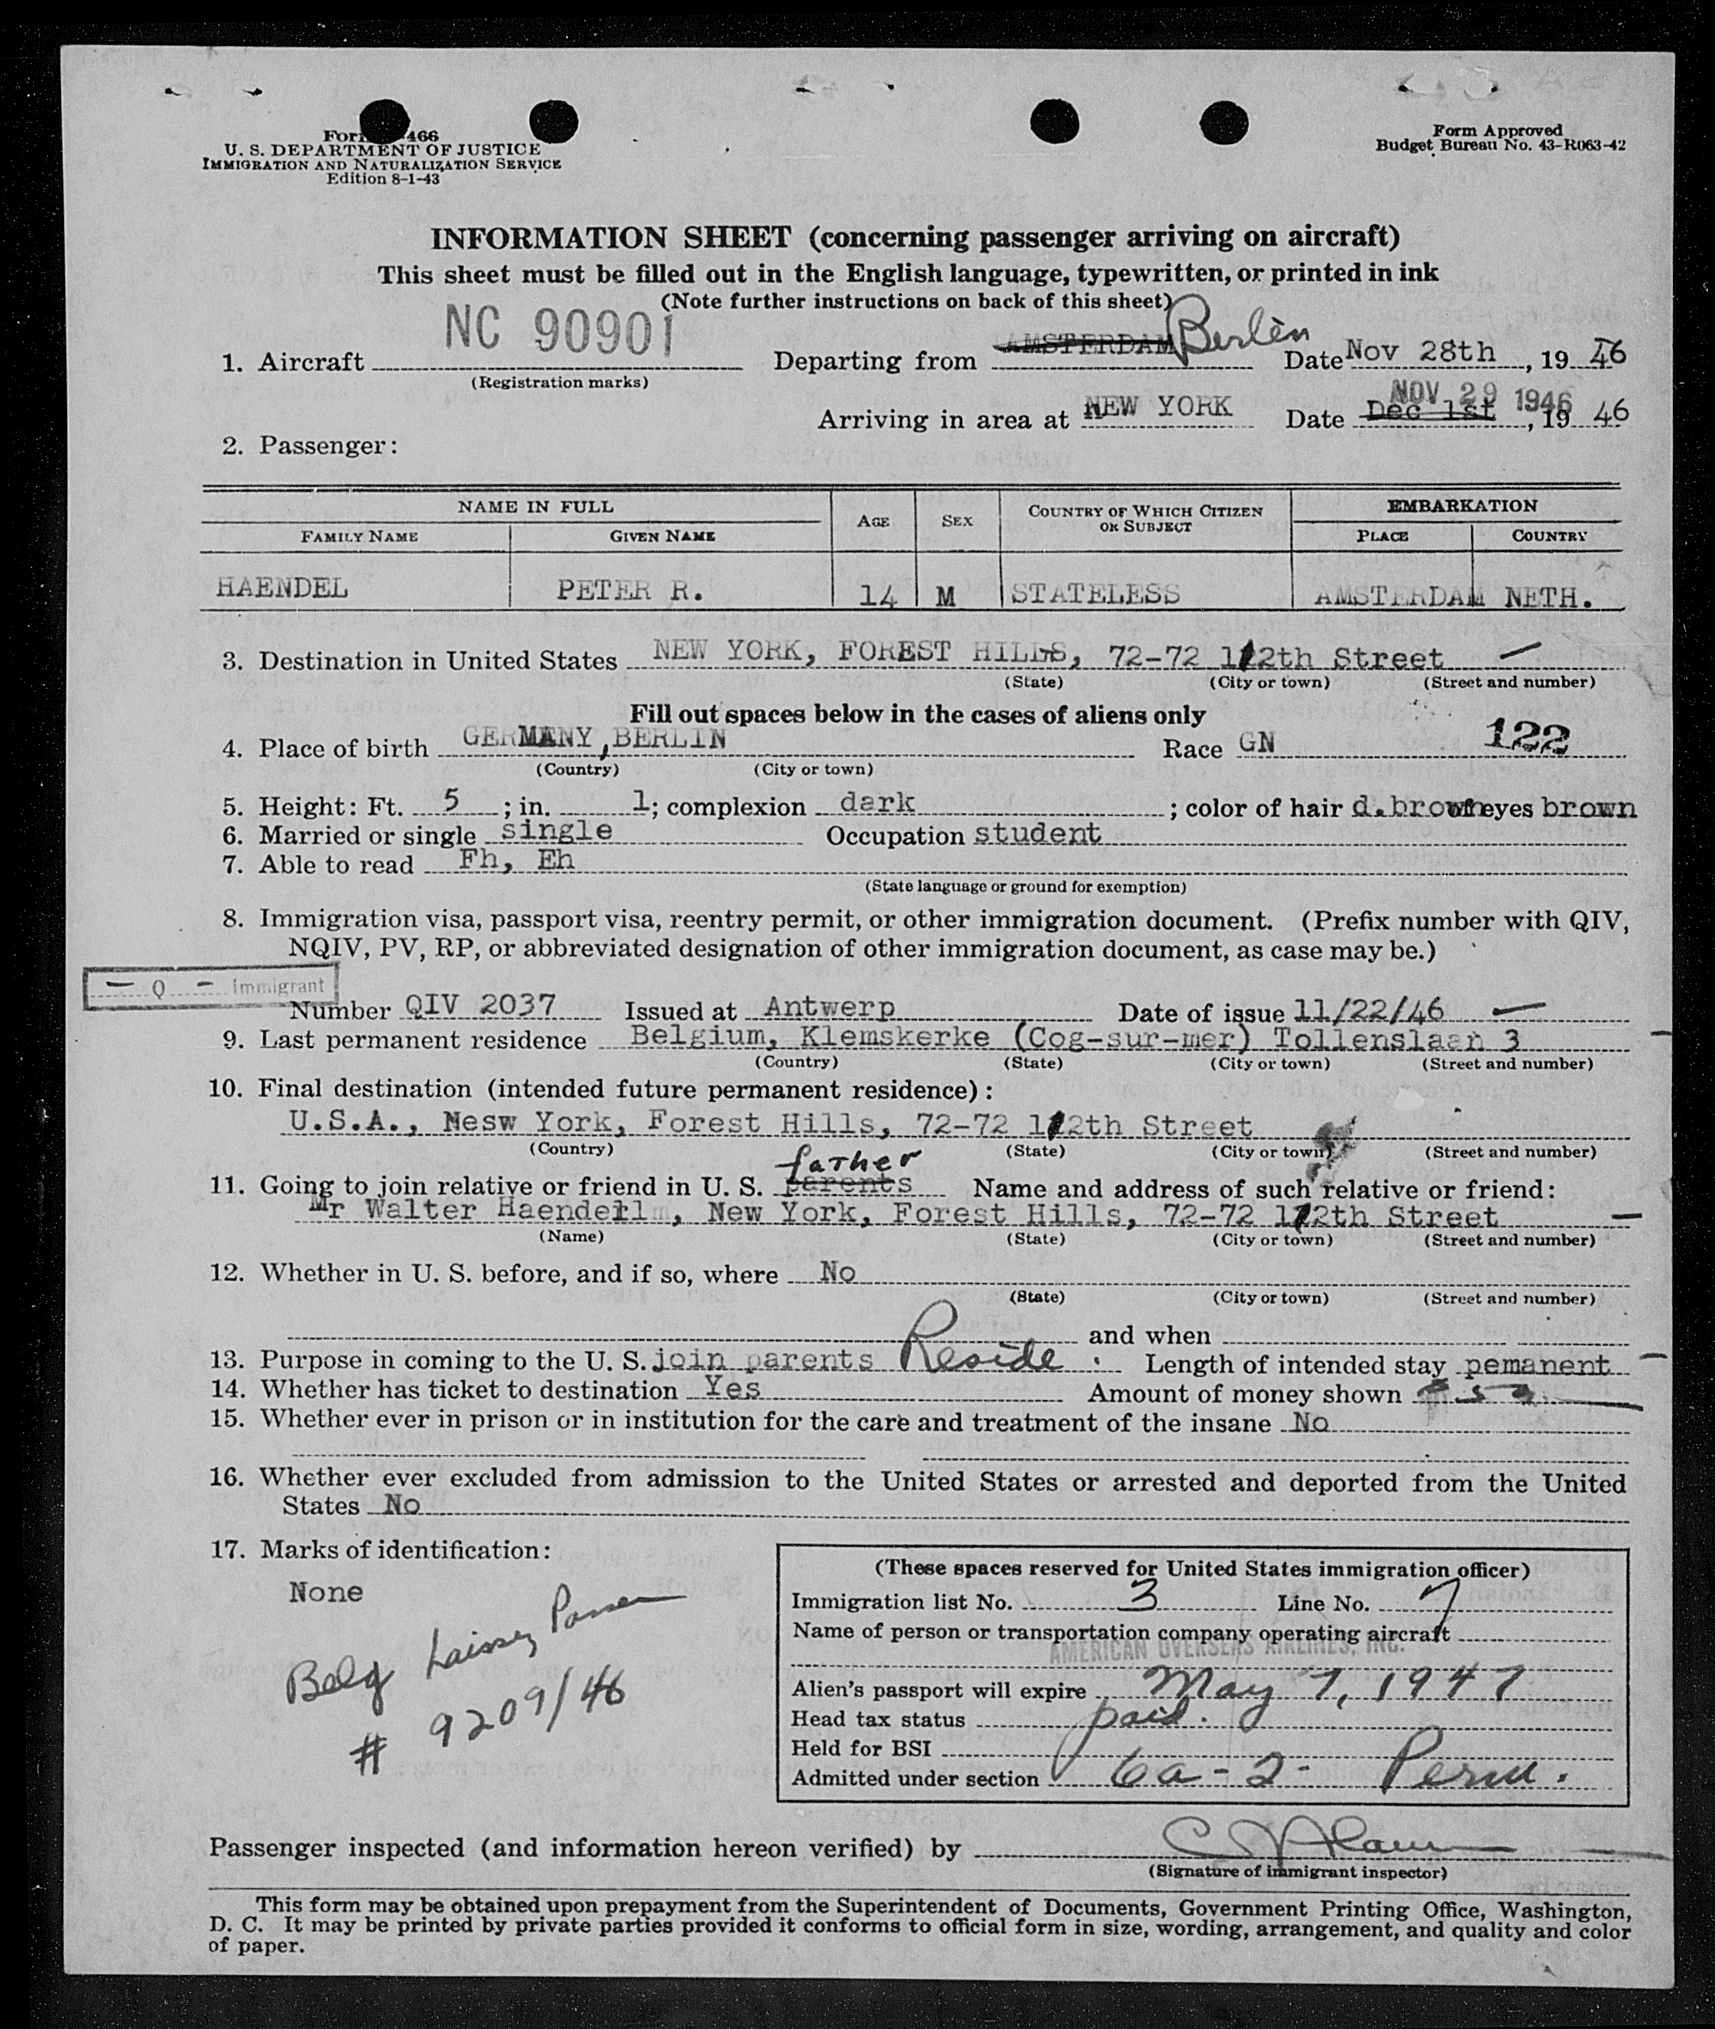 466
U. S. DEPARTMENT OF JUSTICE
IMMIGRATION AND NATURALIZATION SERVICE
Edition 8-1-43
Form Approved
Budget Bureau No. 43-R063-42
INFORMATION SHEET (concerning passenger arriving on aircraft)
This sheet must be filled out in the English language, typewritten, or printed in ink
(Note further instructions on back of this sheet)
1. Aircraft NC 90901 Departing from AMSTERDAM Berlin Date Nov 28th, 19 46
(Registration marks)
Arriving in area at NEW YORK Date Dec 1st NOV 29 1946, 19 46
2. Passenger:
NAME IN FULL AGE SEX COUNTRY OF WHICH CITIZEN OR SUBJECT EMBARKATION
FAMILY NAME GIVEN NAME PLACE COUNTRY
HAENDEL PETER R. 14 M STATELESS AMSTERDAM NETH.
3. Destination in United States NEW YORK, FOREST HILLS, 72-72 112th Street —
(State) (City or town) (Street and number)
Fill out spaces below in the cases of aliens only
4. Place of birth GERMANY, BERLIN Race GN 122
(Country) (City or town)
5. Height: Ft. 5; in. 1; complexion dark; color of hair d.brown of eyes brown
6. Married or single single Occupation student
7. Able to read Fh, Eh
(State language or ground for exemption)
8. Immigration visa, passport visa, reentry permit, or other immigration document. (Prefix number with QIV,
NQIV, PV, RP, or abbreviated designation of other immigration document, as case may be.)
— Q — Immigrant
Number QIV 2037 Issued at Antwerp Date of issue 11/22/46 —
9. Last permanent residence Belgium, Klemskerke (Cog-sur-mer) Tollenslaan 3 —
(Country) (State) (City or town) (Street and number)
10. Final destination (intended future permanent residence):
U.S.A., Nesw York, Forest Hills, 72-72 112th Street
(Country) (State) (City or town) (Street and number)
father
11. Going to join relative or friend in U. S. parents Name and address of such relative or friend:
Mr Walter Haendel, New York, Forest Hills, 72-72 112th Street —
(Name) (State) (City or town) (Street and number)
12. Whether in U. S. before, and if so, where No
(State) (City or town) (Street and number)
and when
13. Purpose in coming to the U. S. join parents Reside. Length of intended stay pemanent —
14. Whether has ticket to destination Yes Amount of money shown
15. Whether ever in prison or in institution for the care and treatment of the insane No
16. Whether ever excluded from admission to the United States or arrested and deported from the United
States No
17. Marks of identification:
None
Belg Laissez Passer
# 9209/46
(These spaces reserved for United States immigration officer)
Immigration list No. 3 Line No. 7
Name of person or transportation company operating aircraft
AMERICAN OVERSEAS AIRLINES, INC.
Alien's passport will expire May 7, 1947
Head tax status paid.
Held for BSI
Admitted under section 6a-2- Perm.
Passenger inspected (and information hereon verified) by
(Signature of immigrant inspector)
This form may be obtained upon prepayment from the Superintendent of Documents, Government Printing Office, Washington,
D. C. It may be printed by private parties provided it conforms to official form in size, wording, arrangement, and quality and color
of paper.